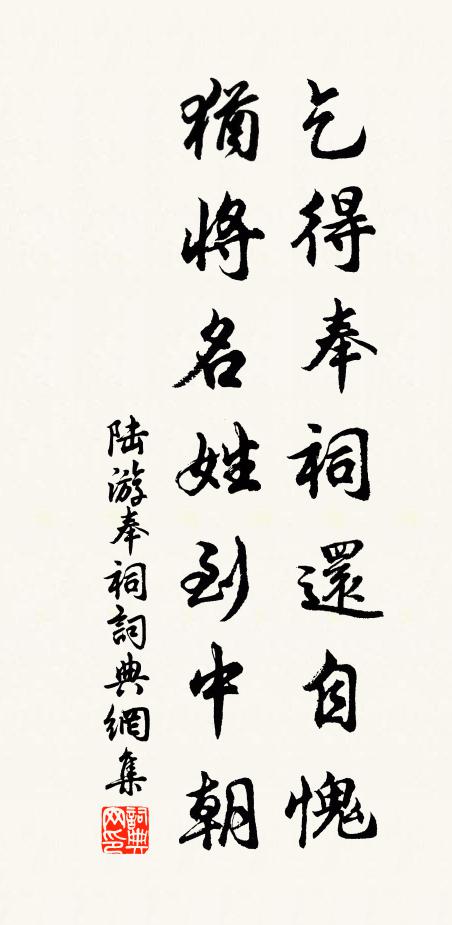 乞得奉祠還自愧
猶將名姓到中朝
陆游奉祠詞典網集
詞典网印